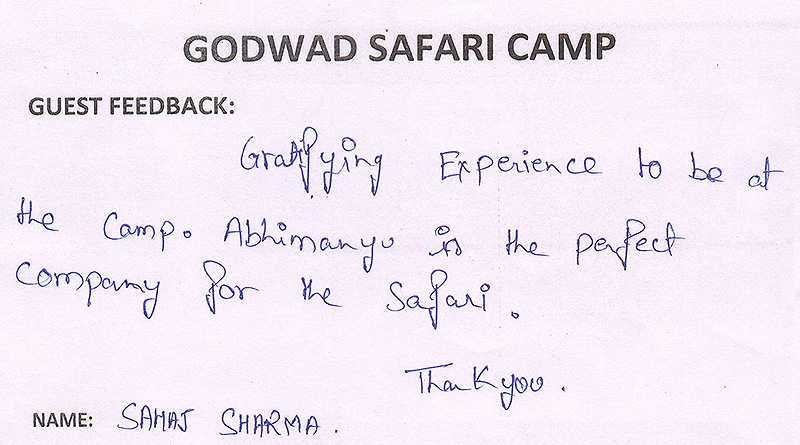 GODWAD SAFARI CAMP
GUEST FEEDBACK:
Gratifying Experience to be at
the Camp. Abhimanyu is the perfect
company for the Safari.
Thank you.
NAME: SAHAJ SHARMA.